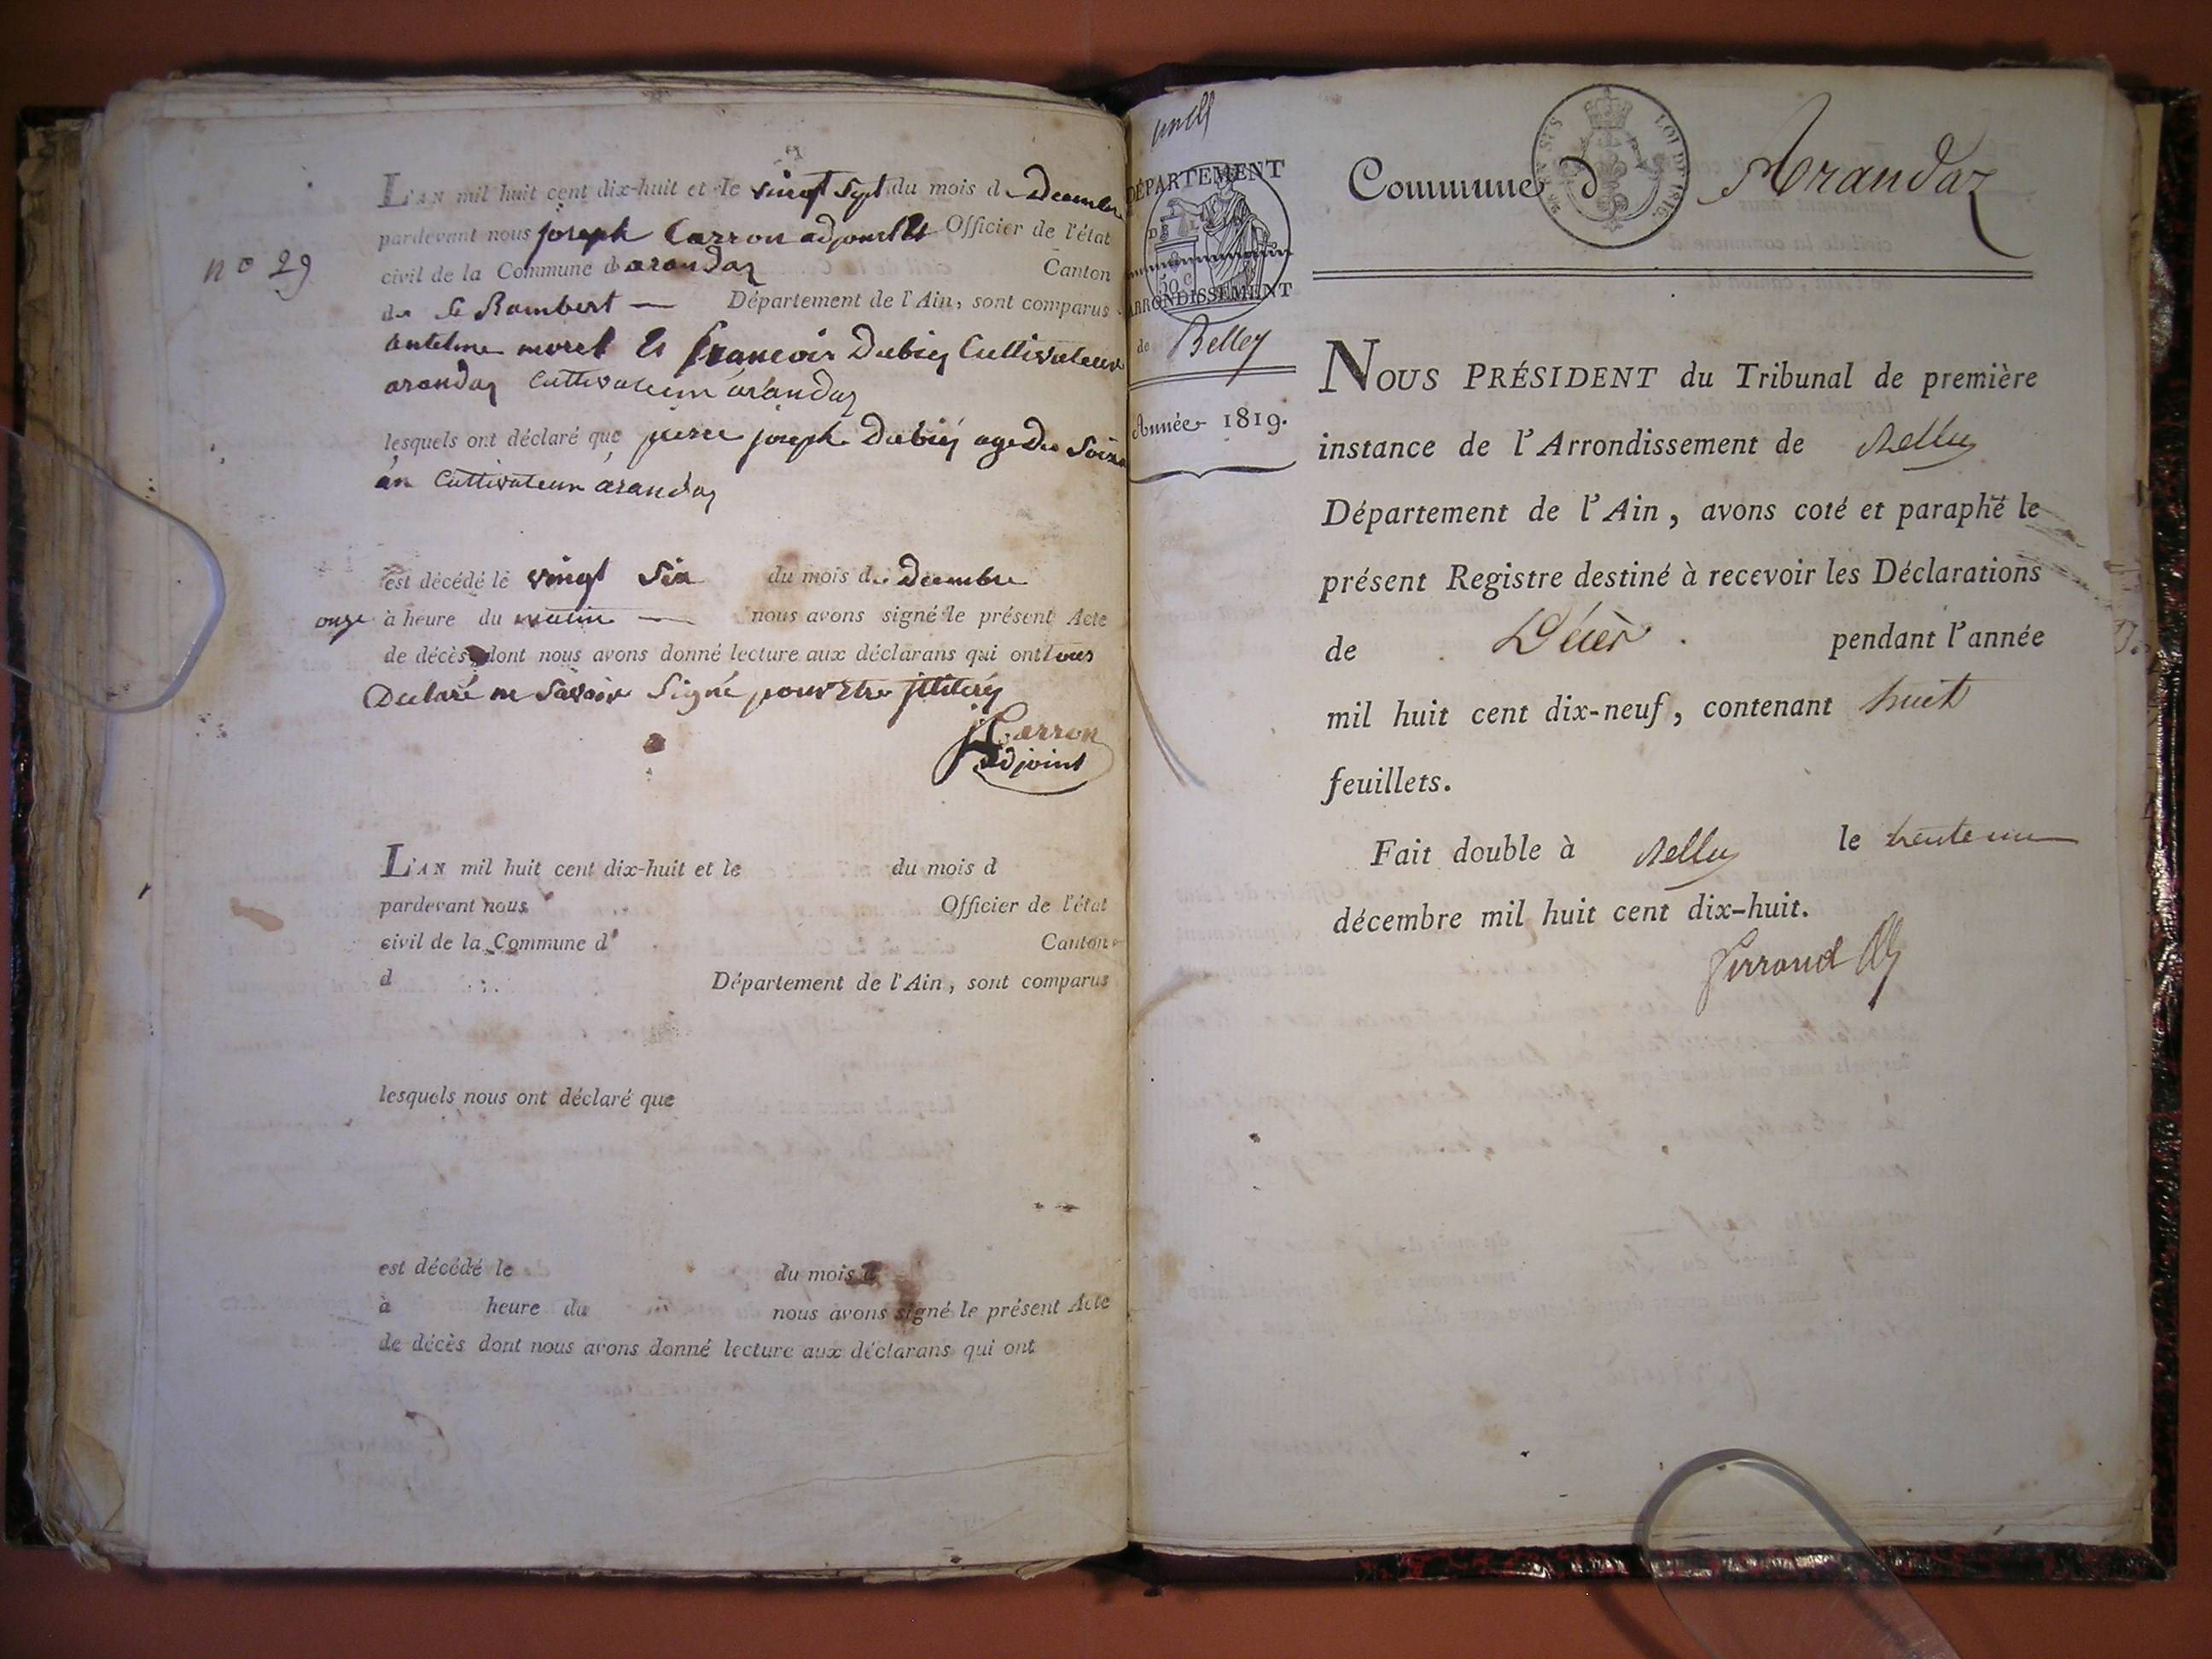 n° 29
L'AN mil huit cent dix-huit et le vingt Sept du mois de Decembre
pardevant nous joseph Carron adjoint Officier de l'état
civil de la Commune d arandaz Canton
de St Rambert — Département de l'Ain, sont comparus
antelme moret Et françois Dubiey Cultivateur
arandaz Cultivateur arandaz
lesquels ont déclaré que pierre joseph Dubiey age De
an Cultivateur arandaz
est décédé le vingt Six du mois de Decembre
onze à heure du matin — nous avons signé le présent Acte
de décès dont nous avons donné lecture aux déclarans qui ont tous
Declaré ne Savoir Signé pour Etre
Carron
adjoint
L'AN mil huit cent dix-huit et le du mois d
pardevant nous Officier de l'état
civil de la Commune d Canton
d Département de l'Ain, sont comparus
lesquels nous ont déclaré que
est décédé le du mois d
à heure du nous avons signé le présent Acte
de décès dont nous avons donné lecture aux déclarans qui ont
DÉPARTEMENT
DE
50 c
ARRONDISSEMENT
de Belley
Année 1819.
LOI DE 1816.
Commune d Arandaz
NOUS PRÉSIDENT du Tribunal de première
instance de l'Arrondissement de Belley
Département de l'Ain, avons coté et paraphé le
présent Registre destiné à recevoir les Déclarations
de Décès. pendant l'année
mil huit cent dix-neuf, contenant huit
feuillets.
Fait double à Belley le trente un
décembre mil huit cent dix-huit.